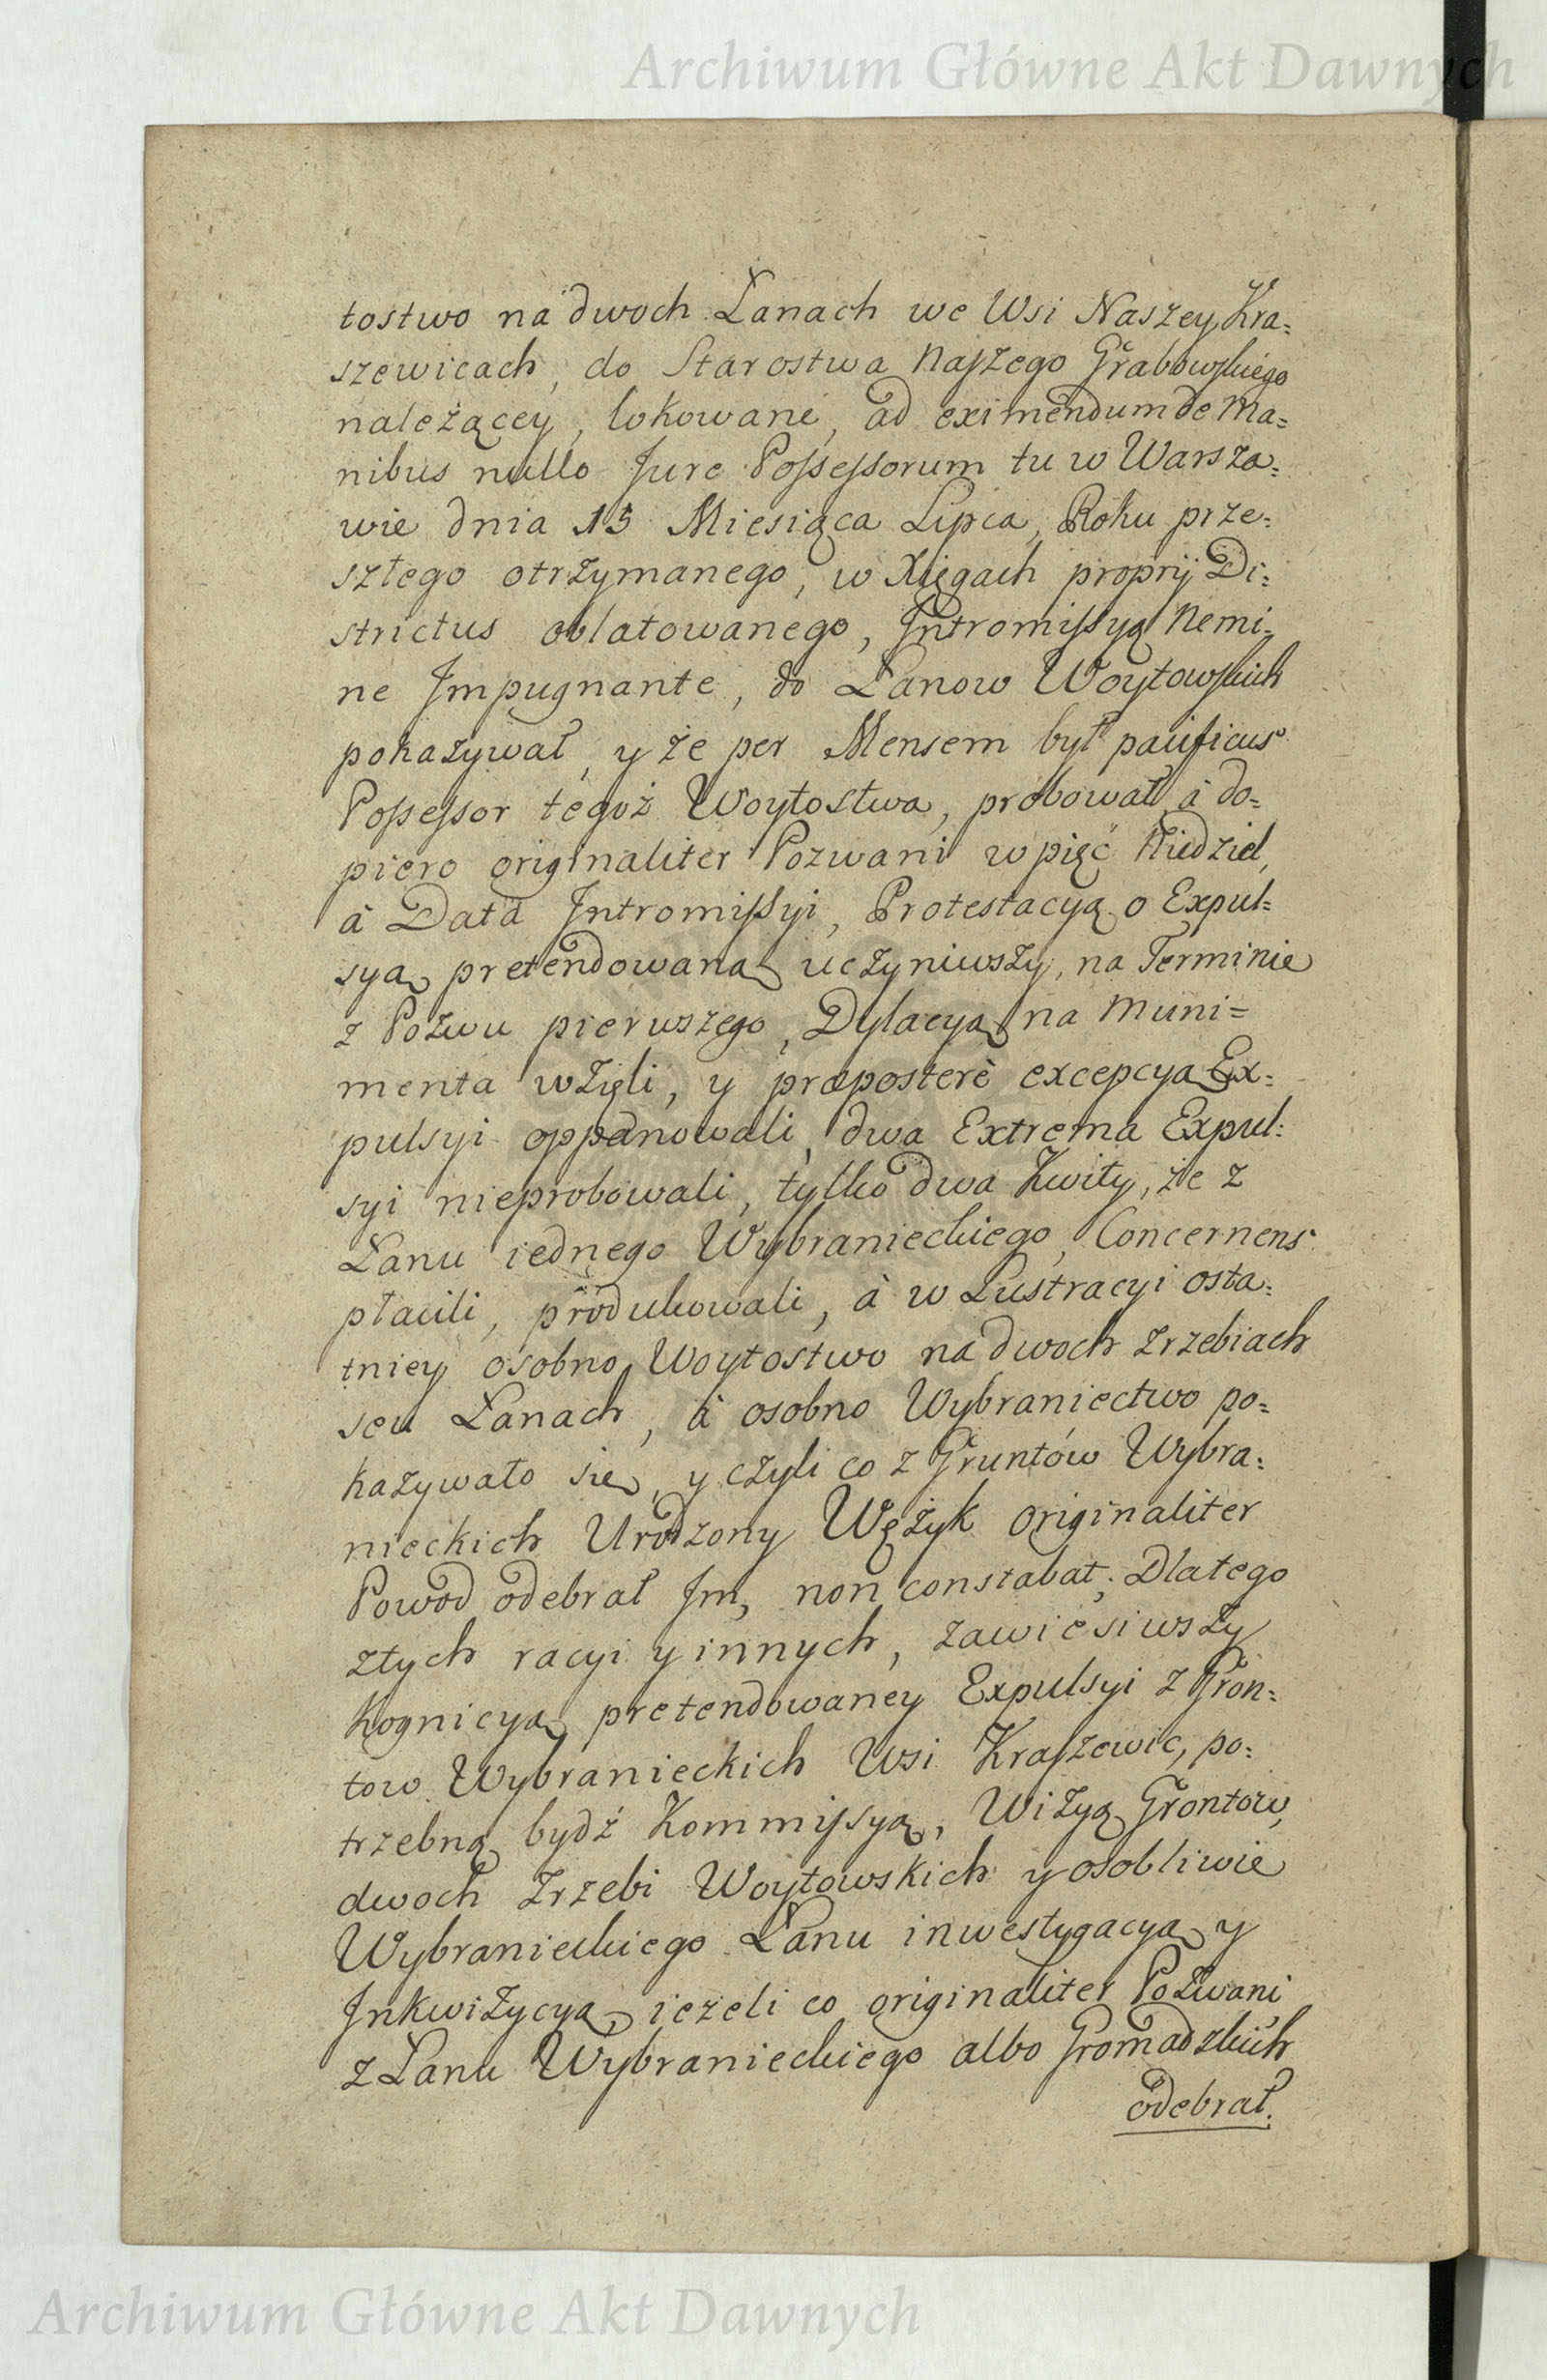 Archiwum Główne Akt Dawnych
tostwo na dwoch Łanach we Wsi Naszey Kra=
szewicach, do Starostwa Naszego Grabowskiego
należącey, lokowane, ad eximendum de Ma=
nibus nullo Jure Possessorum tu w Warsza=
wie dnia 15 Miesiąca Lipca, Roku prze=
szłego otrzymanego, w Xięgach proprij Di=
strictus oblatowanego, Intromissyą Nemi=
ne Impugnante, do Łanow Woytowskich
pokazywał, y że per Mensem był pacificus
Possessor tegoż Woytostwa, probował, à do=
piero originaliter Pozwani w pięć Niedziel,
à Data Intromissyi, Protestacyą o Expul=
syą pretendowaną uczyniwszy, na Terminie
z Pozwu pierwszego, Dylacyą na Muni=
menta wzięli, y præposterè excepcyą Ex=
pulsyi opponowali, dwa Extrema Expul=
syi nieprobowali, tylko dwa Kwity, że z
Łanu iednego Wybranieckiego, Concernens
płacili, produkowali, à w Lustracyi osta=
tniey osobno Woytostwo na dwoch Zrzebiach
seu Łanach, à osobno Wybraniectwo po=
kazywało się, y czyli co z Gruntów Wybra=
nieckich Urodzony Wężyk originaliter
Powod odebrał Im, non constabat; Dlatego
ztych racyi y innych, zawiesiwszy
Kognicyą pretendowaney Expulsyi z Gron=
tow Wybranieckich Wsi Kraszewic, po=
trzebną bydź Kommissyą, Wizyą Grontow,
dwoch Zrzebi Woytowskich y osobliwie
Wybranieckiego Łanu inwestygacyą y
Inkwizycyą, ieżeli co originaliter Pozwani
z Łanu Wybranieckiego albo Gromadzkich
odebrał.
Archiwum Główne Akt Dawnych